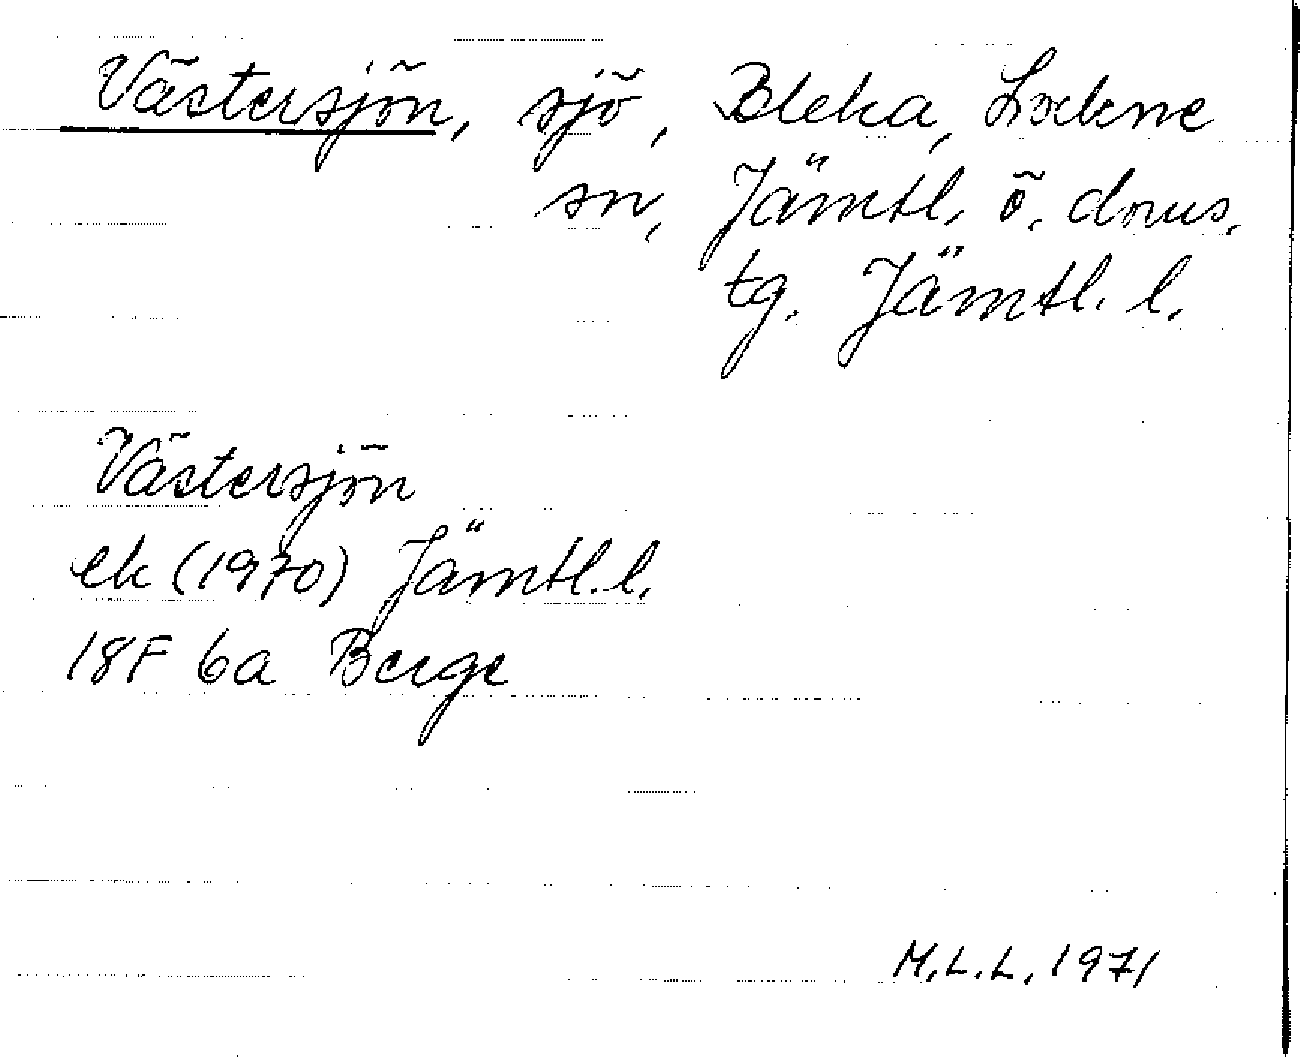 Västersjön, sjö, Bleka, Lockne
sn, Jämtl. ö. doms.
tg. Jämtl. l.
Västersjön
ek (1970) Jämtl. l.
18F 6a Berge
M.L.L. 1971